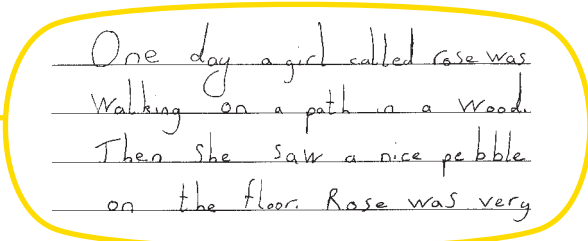 One day a girl called rose was
Walking on a path in a wood.
Then She saw a nice pebble
on the floor. Rose was very